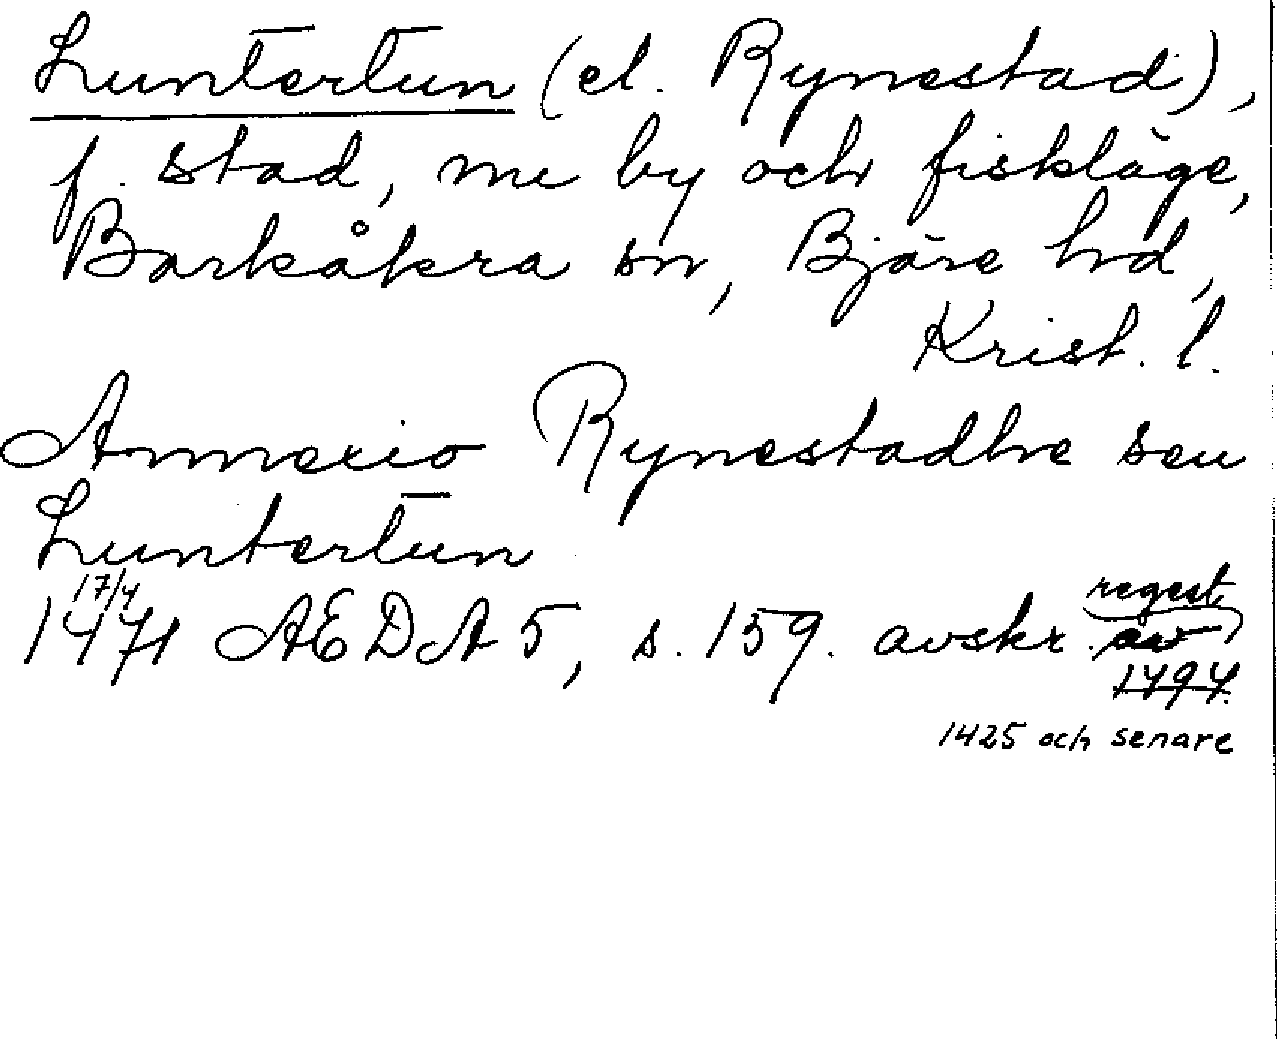 Luntertun (el. Rynestad),
f. stad, nu by och fiskläge,
Barkåkra sn, Bjäre hd,
Krist. l.
Annexio Rynestadhe seu
Luntertun
17/4
1471 AEDA 5, s. 159. avskr. av regest
1494.
1425 och senare